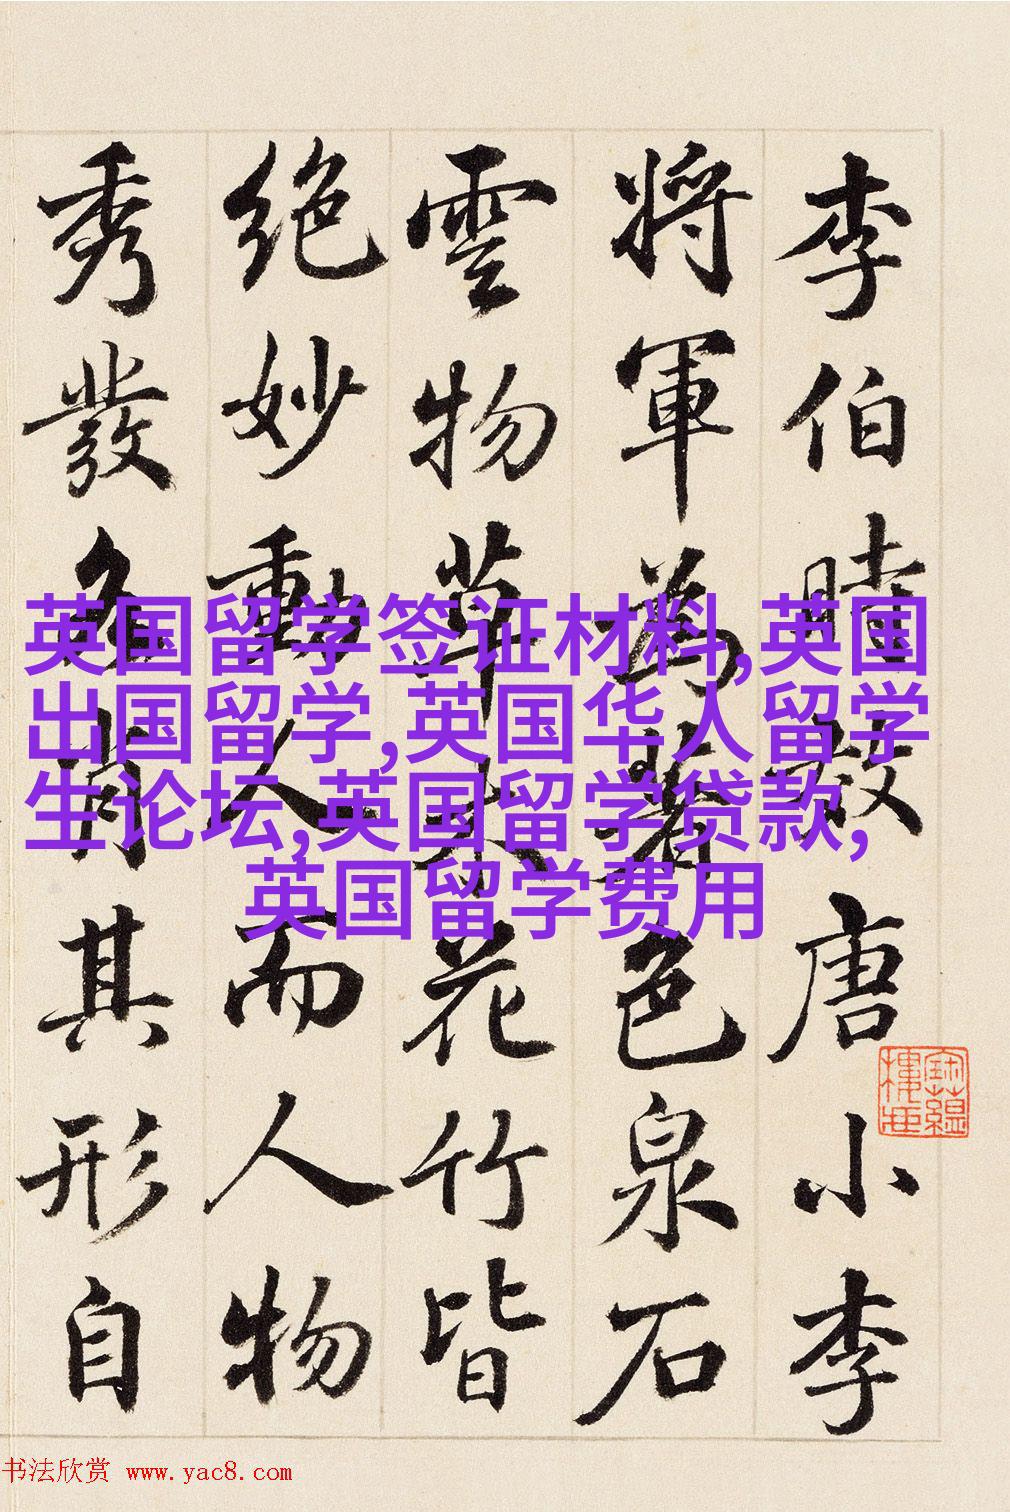 李伯時效唐小李
將軍為著色泉石
雲物草木花竹皆
絕妙動人而人物
秀發各肖其形自
英国留学签证材料,英国
出国留学,英国华人留学
生论坛,英国留学贷款,
英国留学费用
书法欣赏 www.yac8.com